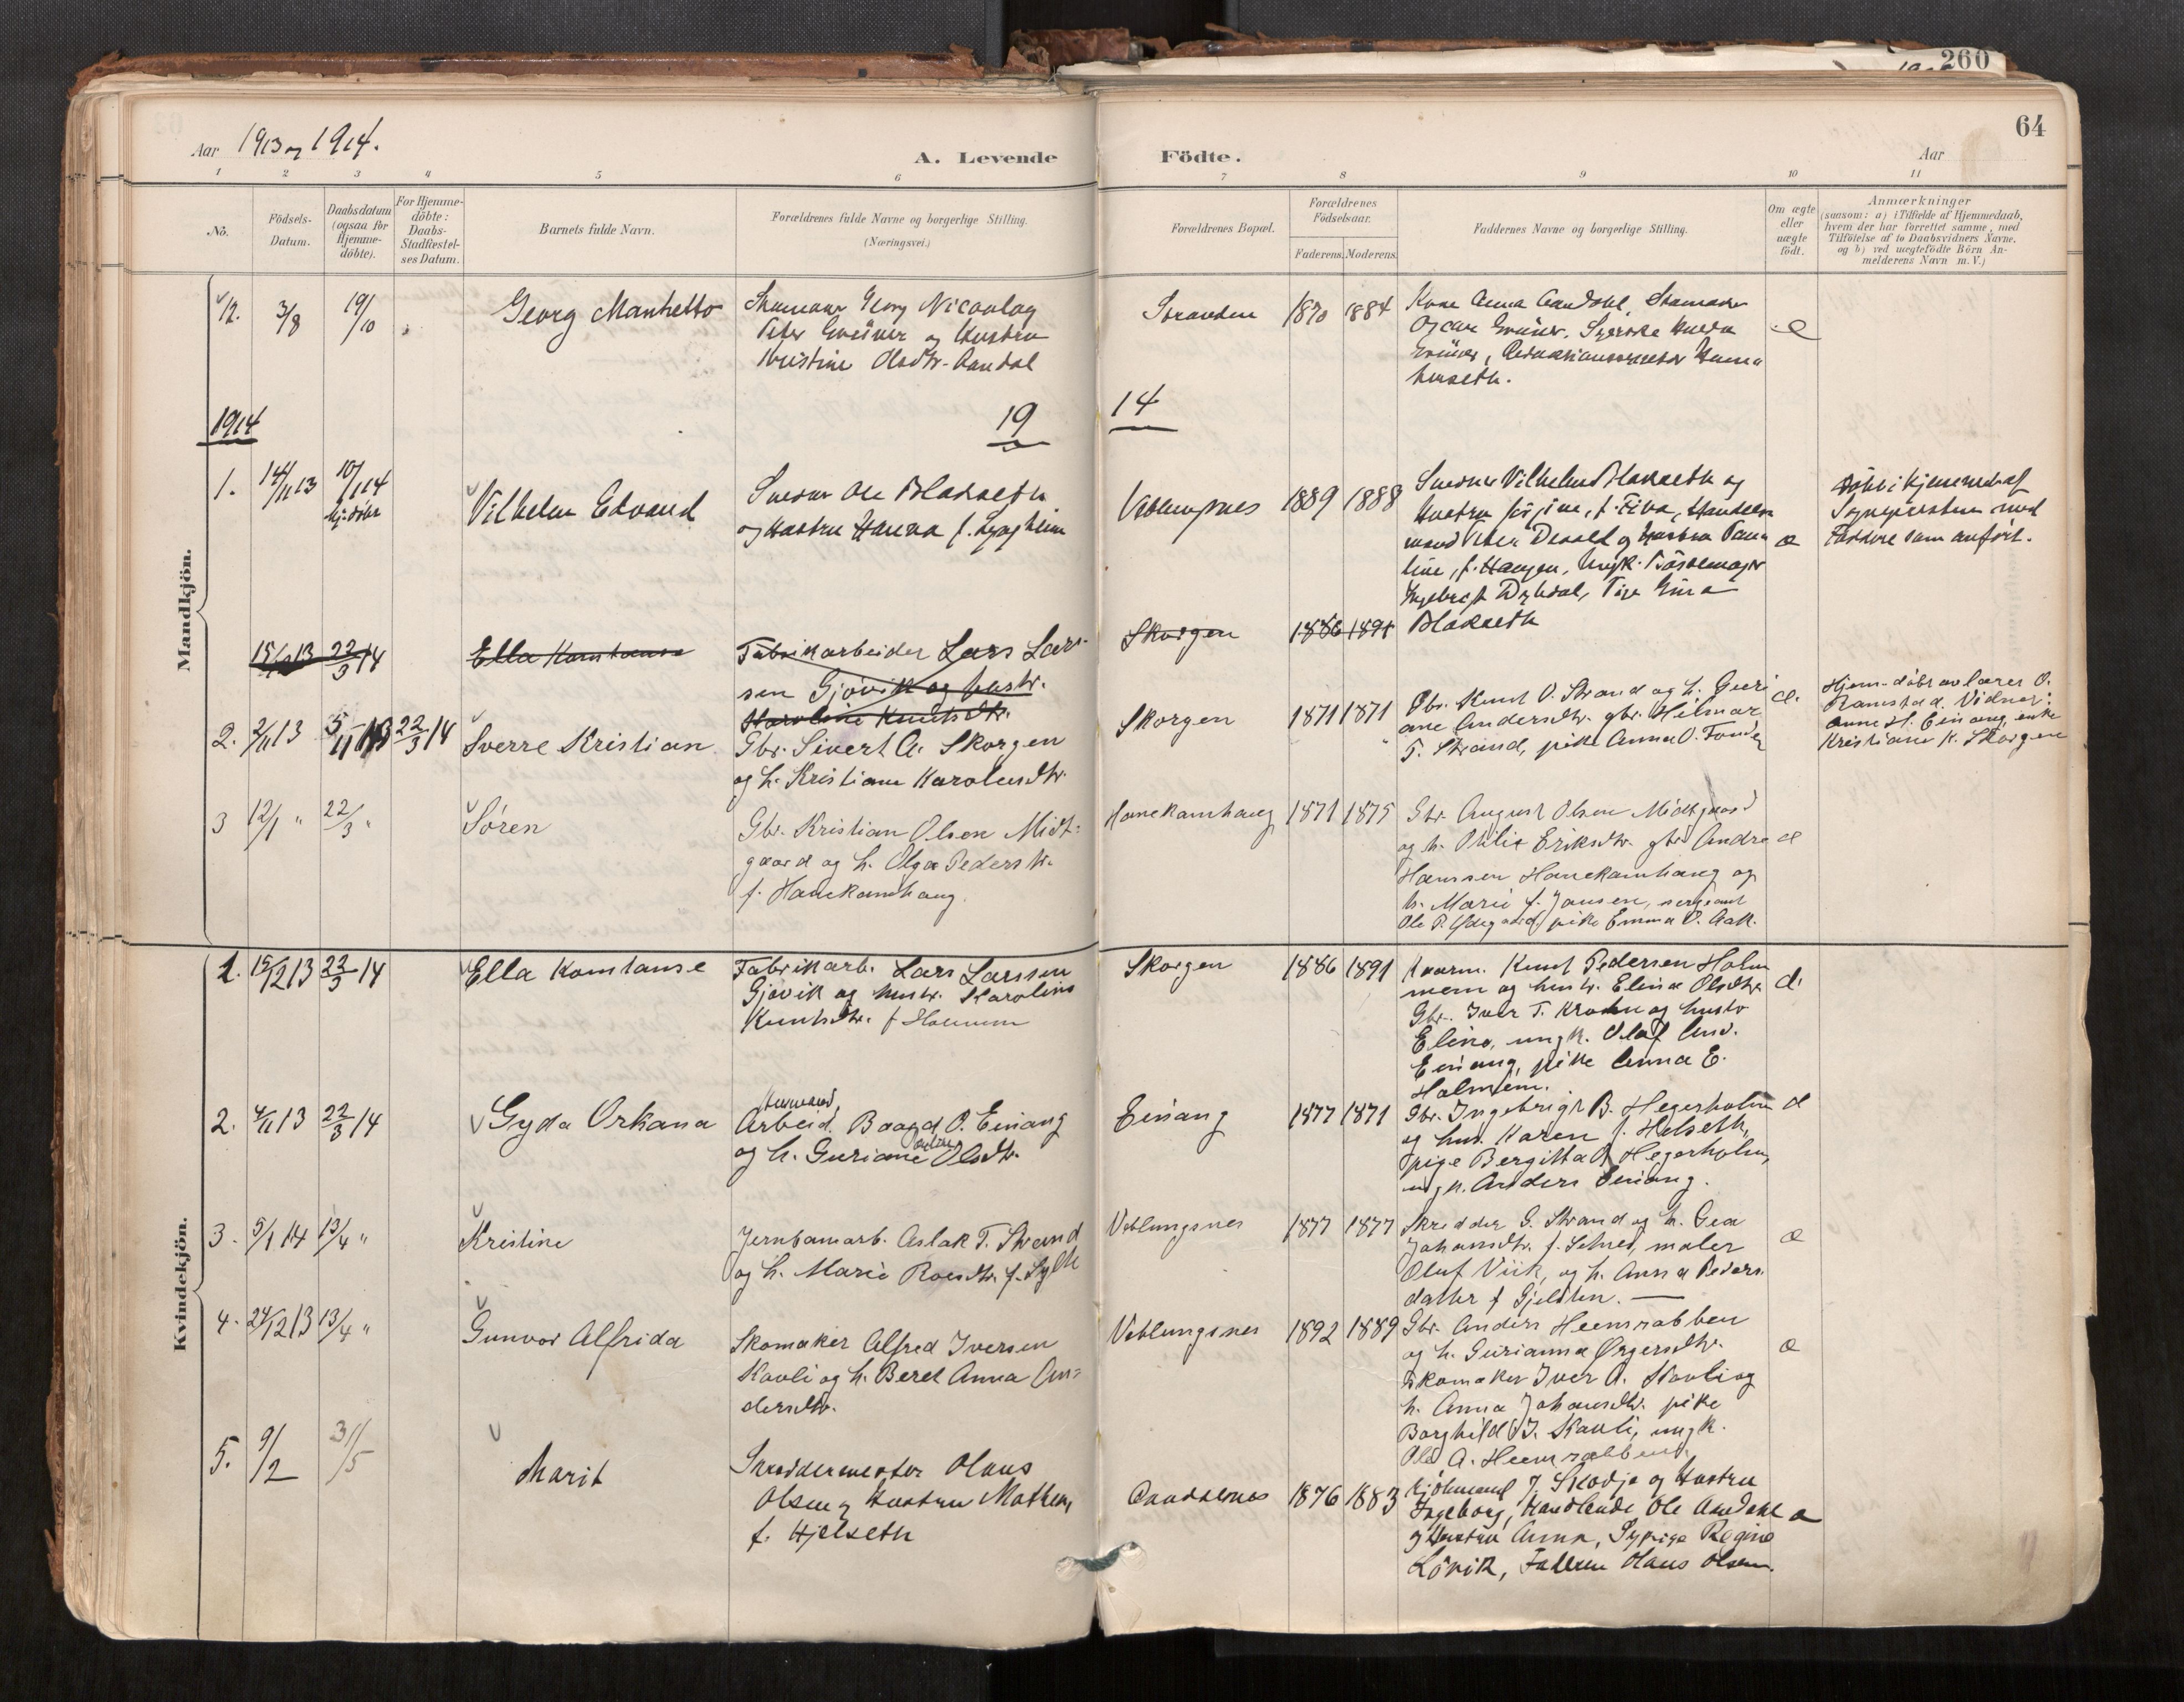 260
64
Aar 1913 og 1914.
A. Levende Födte.
Aar
1 2 3 4 5 6 7 8 9 10 11
No.
Födsels-
Datum.
Daabsdatum
(ogsaa for
Hjemme-
döbte).
For Hjemme-
döbte:
Daabs-
Stadfæstel-
ses Datum.
Barnets fulde Navn.
Forældrenes fulde Navne og borgerlige Stilling.
(Næringsvei.)
Forældrenes Bopæl.
Forældrenes
Födselsaar.
Faderens. Moderens.
Faddernes Navne og borgerlige Stilling.
Om ægte
eller
uægte
födt.
Anmærkninger
(saasom: a) i Tilfælde af Hjemmedaab,
hvem der har forrettet samme, med
Tilföielse af to Daabsvidners Navne.
og b) ved uægtefödte Börn An-
melderens Navn m.V.)
Mandkjön.
12. 3/8 19/10
Georg
Georg Nicoolay
Peter og Hustru
Kristine Olsdtr. Aandal
Stranden 1870 1884
Kone Anna Aandahl,
Oscar Syerske Hulda
1914
19 14
1. 14/11 13 10/1 14
hj. döbt
Vilhelm Edvard
Snedker Ole Blakseth
og Hustru Hanna f.
Veblungsnes 1889 1888
Snedker Vilhelm Blakseth og
Hustru f. Fiva, Handels
mand Peter Devold og Hustru Pau
line, f. Haugen, Ungk.
Ingebrigt Dyhdal, Pige
Blakseth
æ
Döbt i Hjemmet af
Sogneprsten med
Faddere som anført.
15/12 13 22/3 14
Ella Konstanse
Fabrikarbeider Lars Lars-
sen Gjövik og hustr.
Karoline Knutsdtr.
Skorgen 1886 1891
2. 2/11 13 5/11 13 22/3 14
Sverre Kristian
Gbr. Sivert A. Skorgen
og h. Kristiane Karolusdtr.
Skorgen 1871 1871
Gbr. Knut O. Strand og h. Guri
ane Andersdtr. gbr. Hilmar
T. Strand, pike Anna O.
æ.
Hjem-döbt av lærer O.
Ramstad. Vidner:
Anne H. Einang, enke
Kristiane K. Skorgen
3 12/1 " 22/3 "
Søren
Gbr. Kristian Olsen Midt-
gaard og h. Olga Pedersdtr.
f. Hanekamhaug.
Hanekamhaug 1871 1875
Gbr. August Olsen Midtgaard
og h. Otilie Eriksdtr. gbr. Andre
Hanssen Hanekamhaug og
h. Marie f. Jansen, sergeant
Ole P. pike Emma O. Aak.
æ
Kvindekjön.
1. 15/12 13 22/3 14
Ella Konstanse
Fabrikarb. Lars Larssen
Gjövik og hustr. Karoline
Knutsdtr. f Holmem
Skorgen 1886 1891
Knut Pedersen Holm
mem og hustr. Elina Olsdtr.
Gbr. Iver T. Krohn og hustr
Elina, ungk. Olaf And.
Einang, pike Anna E.
Holmem.
æ.
2. 4/11 13 22/3 14
Gyda Orkana
Arbeid. Baard O. Einang
og h. Guriane Olsdtr.
Einang 1877 1871
Gbr. Ingebrigt B. Hegerholm
og hus. Karen f. Helseth,
pige Bergitta Hegerholm,
ungk. Anders Einang.
æ
3. 5/1 14 13/4 "
Kristine
Jernbanearb. Aslak T. Strand
og h. Marie Roesdtr. f. Sylte
Veblungsnes 1877 1877
Skredder G. Strand og h. Gea
Johansdtr. f. Setnes, maler
Oluf Viik, og h. Anna Peders
datter f Gjelsten. —
æ
4. 24/12 13 13/4 "
Gunvor Alfrida
Skomaker Alfred Iversen
Kavli og h. Beret Anna An-
dersdtr.
Veblungsnes 1892 1889
Gbr. Anders Heensrabben
og h. Gurianna Ørgersdtr.
Skomaker Iver A. Kavli og
h. Anna Johansdtr. pike
Borghild I. Kavli, ungk.
Ole A. Heensrabben.
æ
5. 9/2 31/5
Marit
Skreddermester Olaus
Olsen og Hustru Mathea,
f. Hjelseth
Aandalsnes 1876 1883
Kjöbmand J. Skodje og Hustru
Ingeborg, Handlende Ole Aandahl
og Hustru Anna, Sypige Regine
Lövik, Faderen Olaus Olsen.
æ